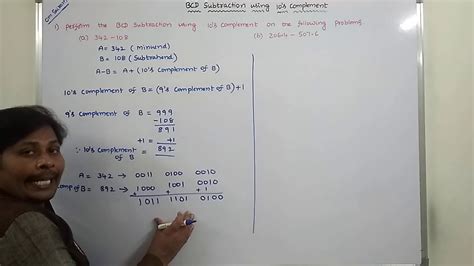 BCD Subtraction using 10's Complement
1) perform the BCD Subtraction using 10's complement on the following problems
(a) 342 - 108
(b) 206.4 - 507.6
A = 342 (minuend)
B = 108 (Subtrahend)
A-B = A + (10's Complement of B)
10's complement of B = (9's Complement of B) + 1
9's complement of B = 999
-108
891
+1 = +1
∵ 10's Complement of B = 892
A = 342 → 0011 0100 0010
Comp of B = 892 → 1000 1001 0010
+ + + 1
1011 1101 0100